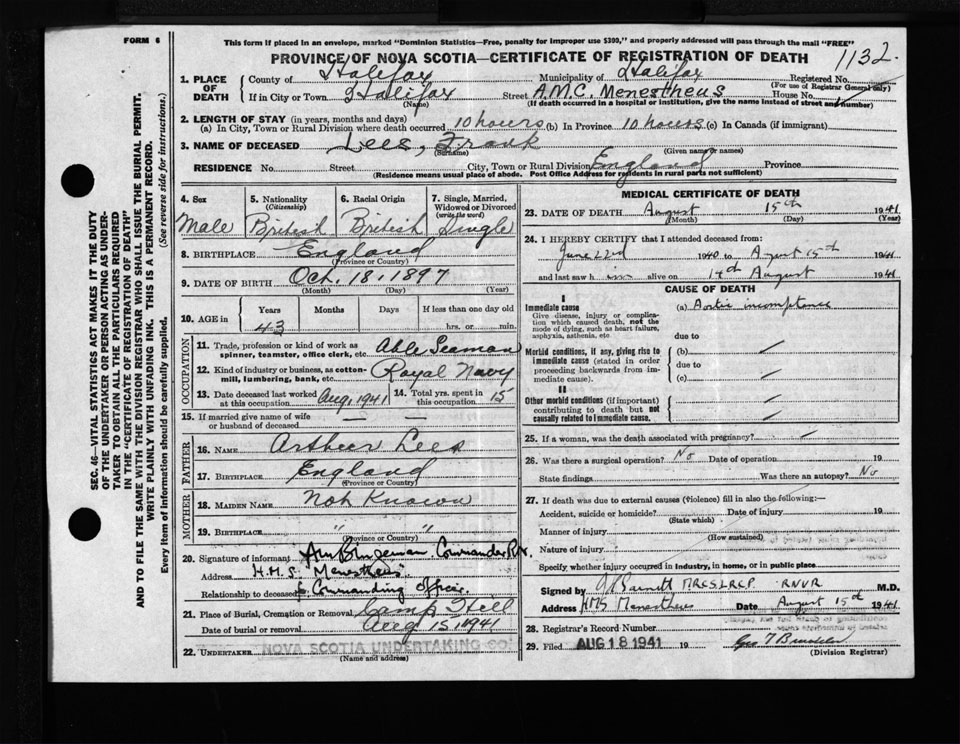 FORM 6
This form if placed in an envelope, marked "Dominion Statistics—Free, penalty for improper use $300," and properly addressed will pass through the mail "FREE"
PROVINCE OF NOVA SCOTIA—CERTIFICATE OF REGISTRATION OF DEATH 1132
1. PLACE OF DEATH
County of Halifax Municipality of Halifax Registered No.
(For use of Registrar General only)
If in City or Town Halifax Street A.M.C. Menestheus House No.
(Name) (If death occurred in a hospital or institution, give the name instead of street and number)
2. LENGTH OF STAY (in years, months and days)
(a) In City, Town or Rural Division where death occurred 10 hours (b) In Province 10 hours (c) In Canada (if immigrant)
3. NAME OF DECEASED Lees, Frank
(Surname) (Given name or names)
RESIDENCE No. Street City, Town or Rural Division England Province
(Residence means usual place of abode. Post Office Address for residents in rural parts not sufficient)
4. Sex
Male
5. Nationality
(Citizenship)
British
6. Racial Origin
British
7. Single, Married, Widowed or Divorced
(write the word)
Single
8. BIRTHPLACE England
(Province or Country)
9. DATE OF BIRTH Oct. 18, 1897
(Month) (Day) (Year)
10. AGE in Years Months Days If less than one day old
43 hrs. or min.
OCCUPATION
11. Trade, profession or kind of work as spinner, teamster, office clerk, etc. Able Seaman
12. Kind of industry or business, as cotton-mill, lumbering, bank, etc. Royal Navy
13. Date deceased last worked at this occupation Aug, 1941
14. Total yrs. spent in this occupation 15
15. If married give name of wife or husband of deceased —
FATHER
16. NAME Arthur Lees
17. BIRTHPLACE England
(Province or Country)
MOTHER
18. MAIDEN NAME Not Known
19. BIRTHPLACE " "
(Province or Country)
20. Signature of informant Commander R.N.
Address H.M.S. "Menestheus"
Relationship to deceased Commanding Officer
21. Place of Burial, Cremation or Removal Camp Hill
Date of burial or removal Aug 15, 1941
22. UNDERTAKER NOVA SCOTIA UNDERTAKING CO.
(Name and address)
MEDICAL CERTIFICATE OF DEATH
23. DATE OF DEATH August 15th 1941
(Month) (Day) (Year)
24. I HEREBY CERTIFY that I attended deceased from:
June 22nd 1940 to August 15th 1941
and last saw him alive on 14th August 1941
CAUSE OF DEATH
I
Immediate cause
Give disease, injury or complication which caused death, not the mode of dying, such as heart failure, asphyxia, asthenia, etc.
(a) Aortic incompetence
due to
Morbid conditions, if any, giving rise to immediate cause (stated in order proceeding backwards from immediate cause).
(b)
due to
(c)
II
Other morbid conditions (if important) contributing to death but not causally related to immediate cause.
25. If a woman, was the death associated with pregnancy?
26. Was there a surgical operation? No Date of operation 19
State findings Was there an autopsy? No
27. If death was due to external causes (Violence) fill in also the following:—
Accident, suicide or homicide? Date of injury 19
(State which)
Manner of injury
(How sustained)
Nature of injury
Specify whether injury occurred in Industry, in home, or in public place
Signed by Barnett M.R.C.S. L.R.C.P. RNVR M.D.
Address HMS Menestheus Date August 15th 1941
28. Registrar's Record Number
29. Filed AUG 18 1941 19
(Division Registrar)
SEC. 46—VITAL STATISTICS ACT MAKES IT THE DUTY
OF THE UNDERTAKER OR PERSON ACTING AS UNDER-
TAKER TO OBTAIN ALL THE PARTICULARS REQUIRED
IN THE "CERTIFICATE OF REGISTRATION OF DEATH"
AND TO FILE THE SAME WITH THE DIVISION REGISTRAR WHO SHALL ISSUE THE BURIAL PERMIT.
WRITE PLAINLY WITH UNFADING INK. THIS IS A PERMANENT RECORD.
Every item of information should be carefully supplied. (See reverse side for instructions.)